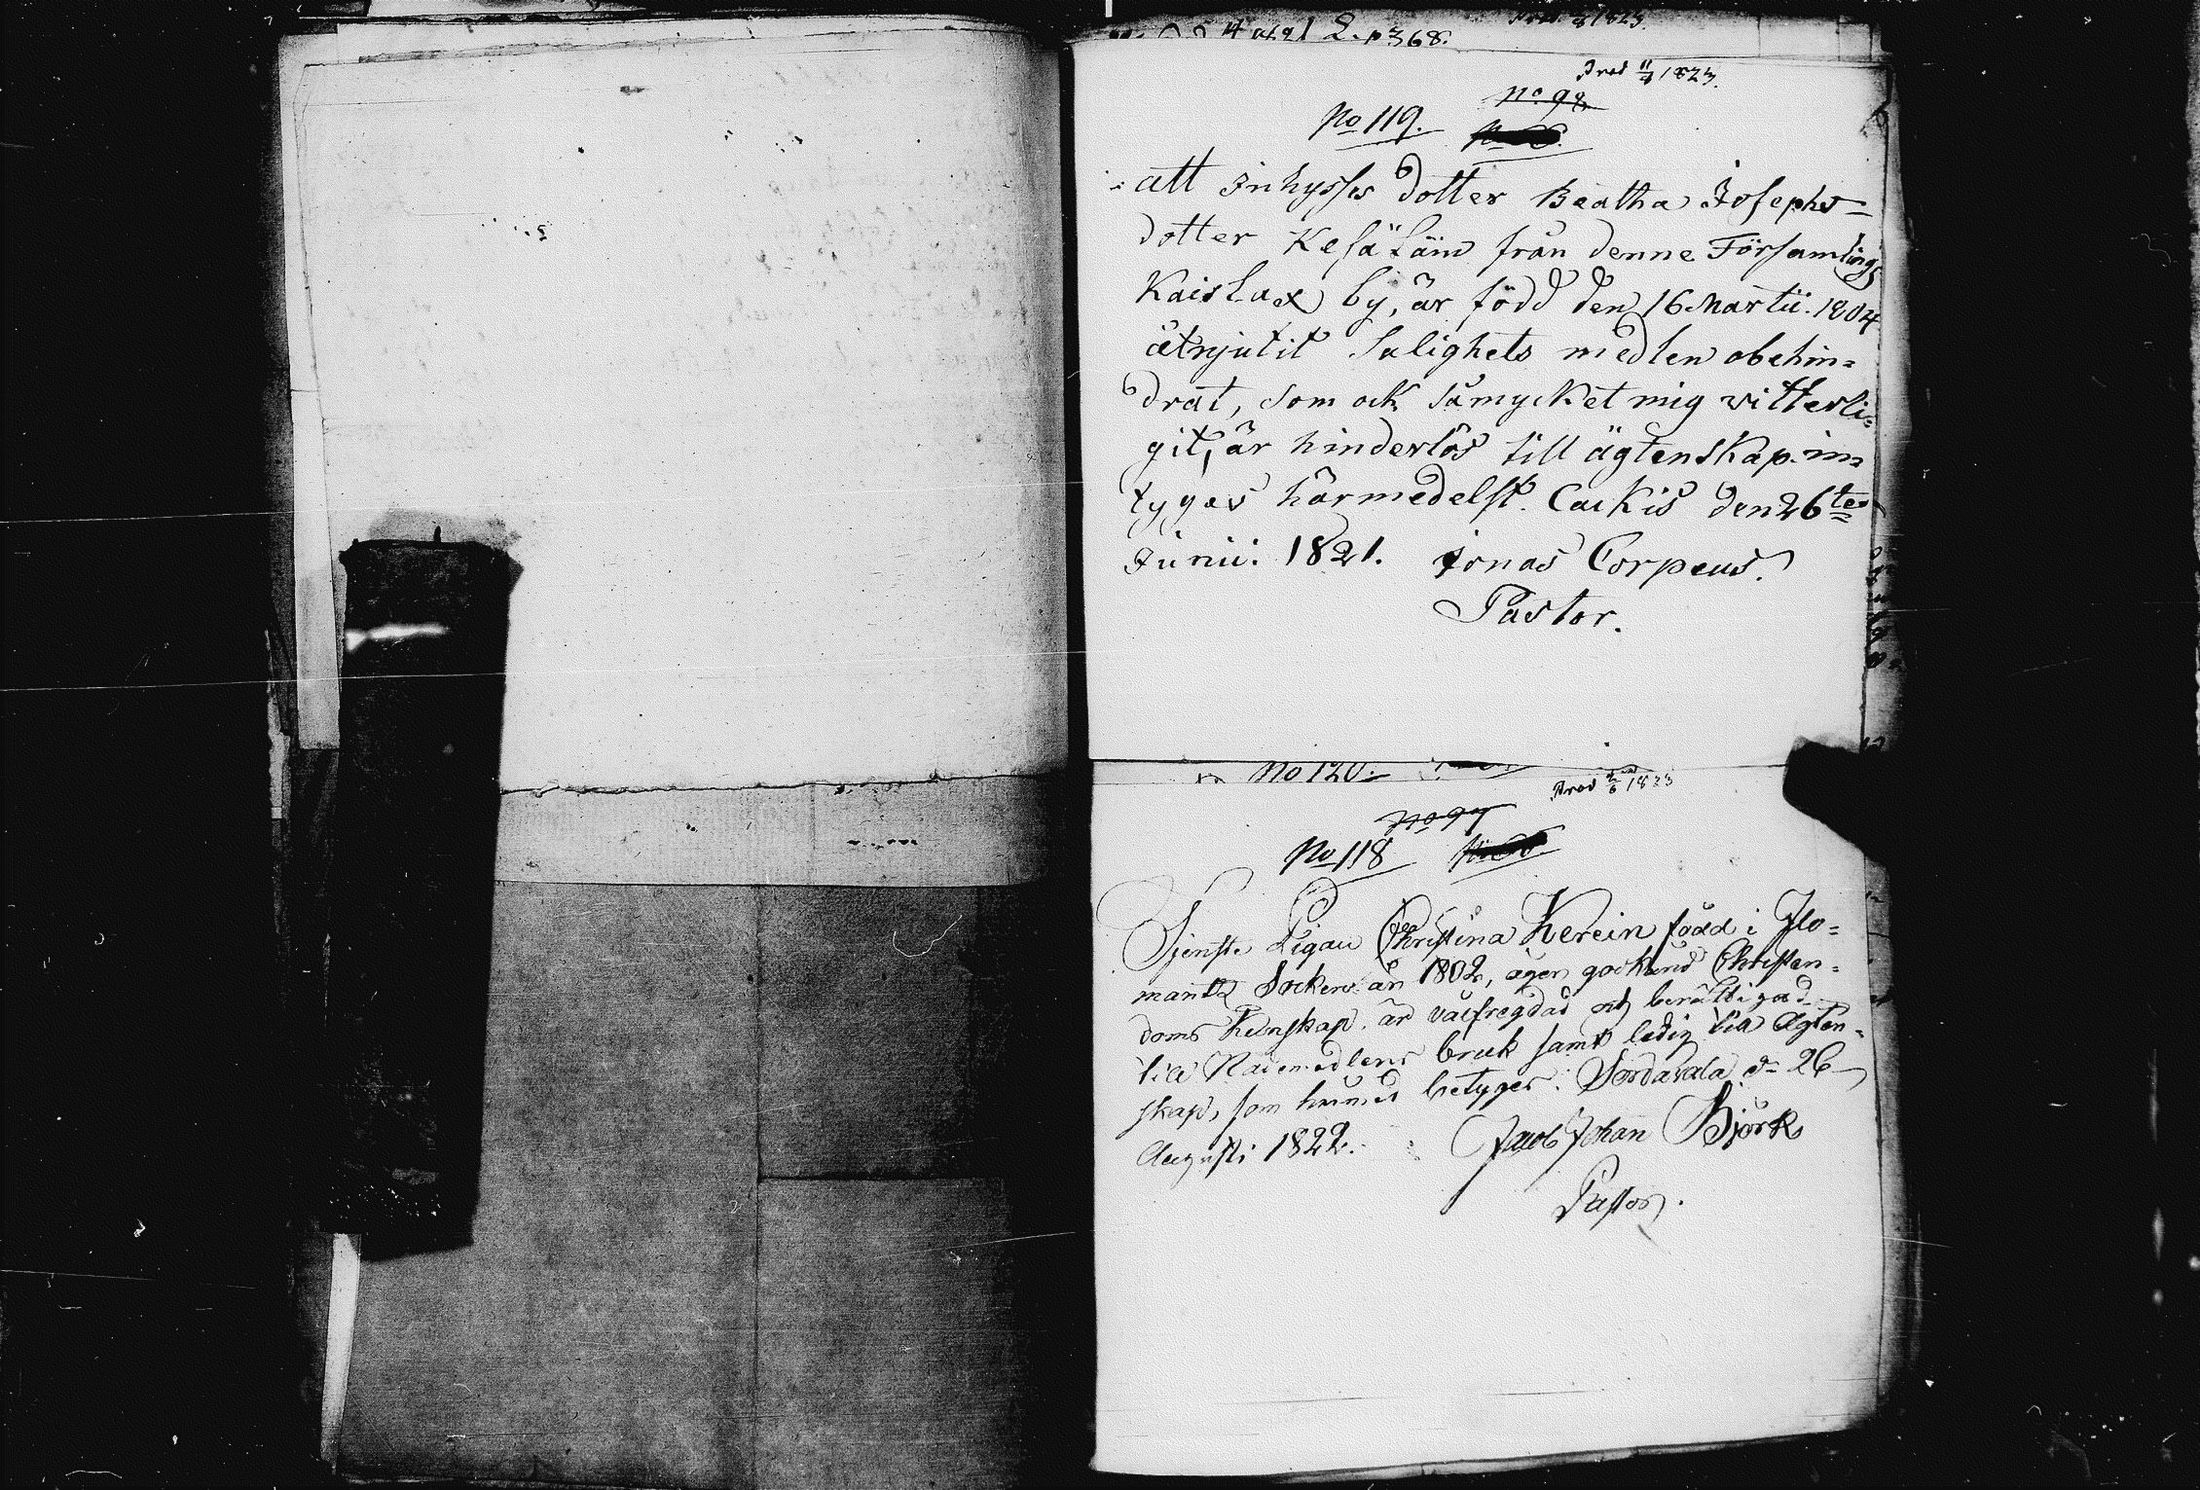 1823.
2. p 368.
Prod 11/4 1823.
No 98
No 119.
att Inhysses dotter Beatha Josephs-
dotter Kesäläin från denne Församlings
Kaislax by, är född den 16 Martii. 1804
åtnjutit Salighets medlen obehin=
drat, som ock såmycket mig witterli=
git, är hinderlös till ägtenskap in=
tygas härmedelst. Cackis den 26te
Junii. 1821. Jonas Corpeus.
Pastor.
No 120.
Prod 1823
No 97
No 118
Tjenste Pigan Christina Kerein född i Ilo=
mantz Socken år 1802, äger godkänd Christen=
doms Kunskap, är välfregdad och berättigad
till Nådemedlens bruk samt ledig till Ägten=
skap, som härmed betygas. Sordavala d= 26
Augusti 1822. Jacob Johan Björk
Pastor.